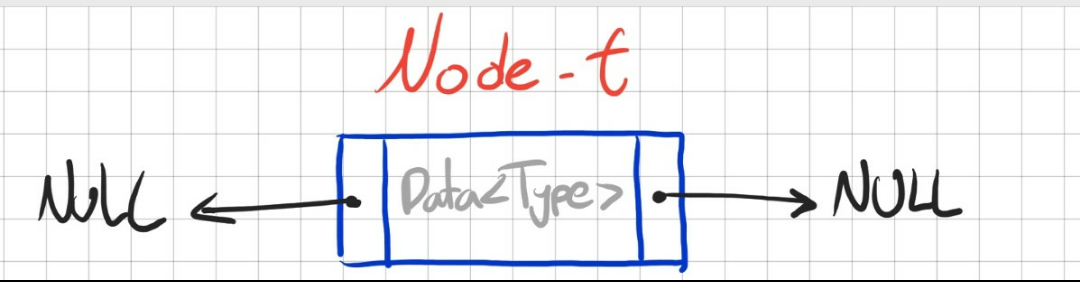 Node-t
NULL Data<Type> NULL